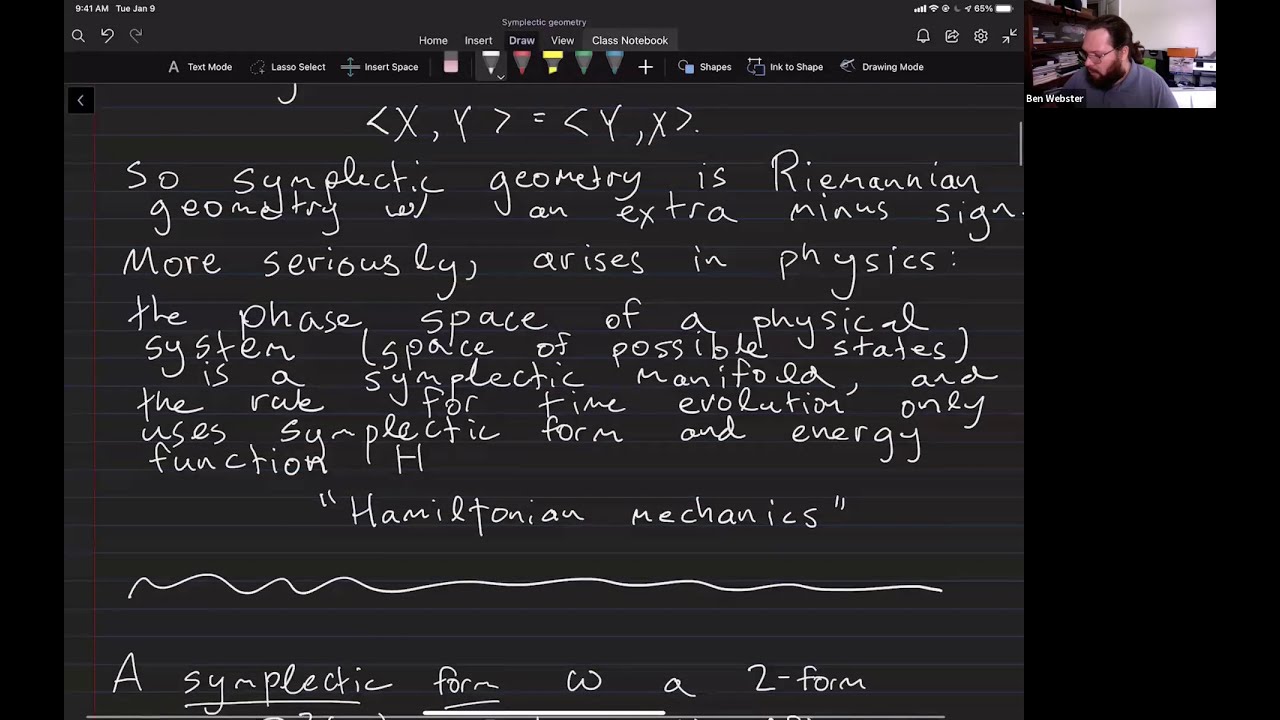 9:41 AM Tue Jan 9
65%
Symplectic geometry
Home Insert Draw View Class Notebook
A Text Mode Lasso Select Insert Space Shapes Ink to Shape Drawing Mode
Ben Webster
<X, Y> = <Y, X>.
So symplectic geometry is Riemannian
geometry w/ an extra minus sign.
More seriously, arises in physics:
the phase space of a physical
system (space of possible states)
is a symplectic manifold, and
the rule for time evolution only
uses symplectic form and energy
function H
"Hamiltonian mechanics"
A symplectic form ω a 2-form